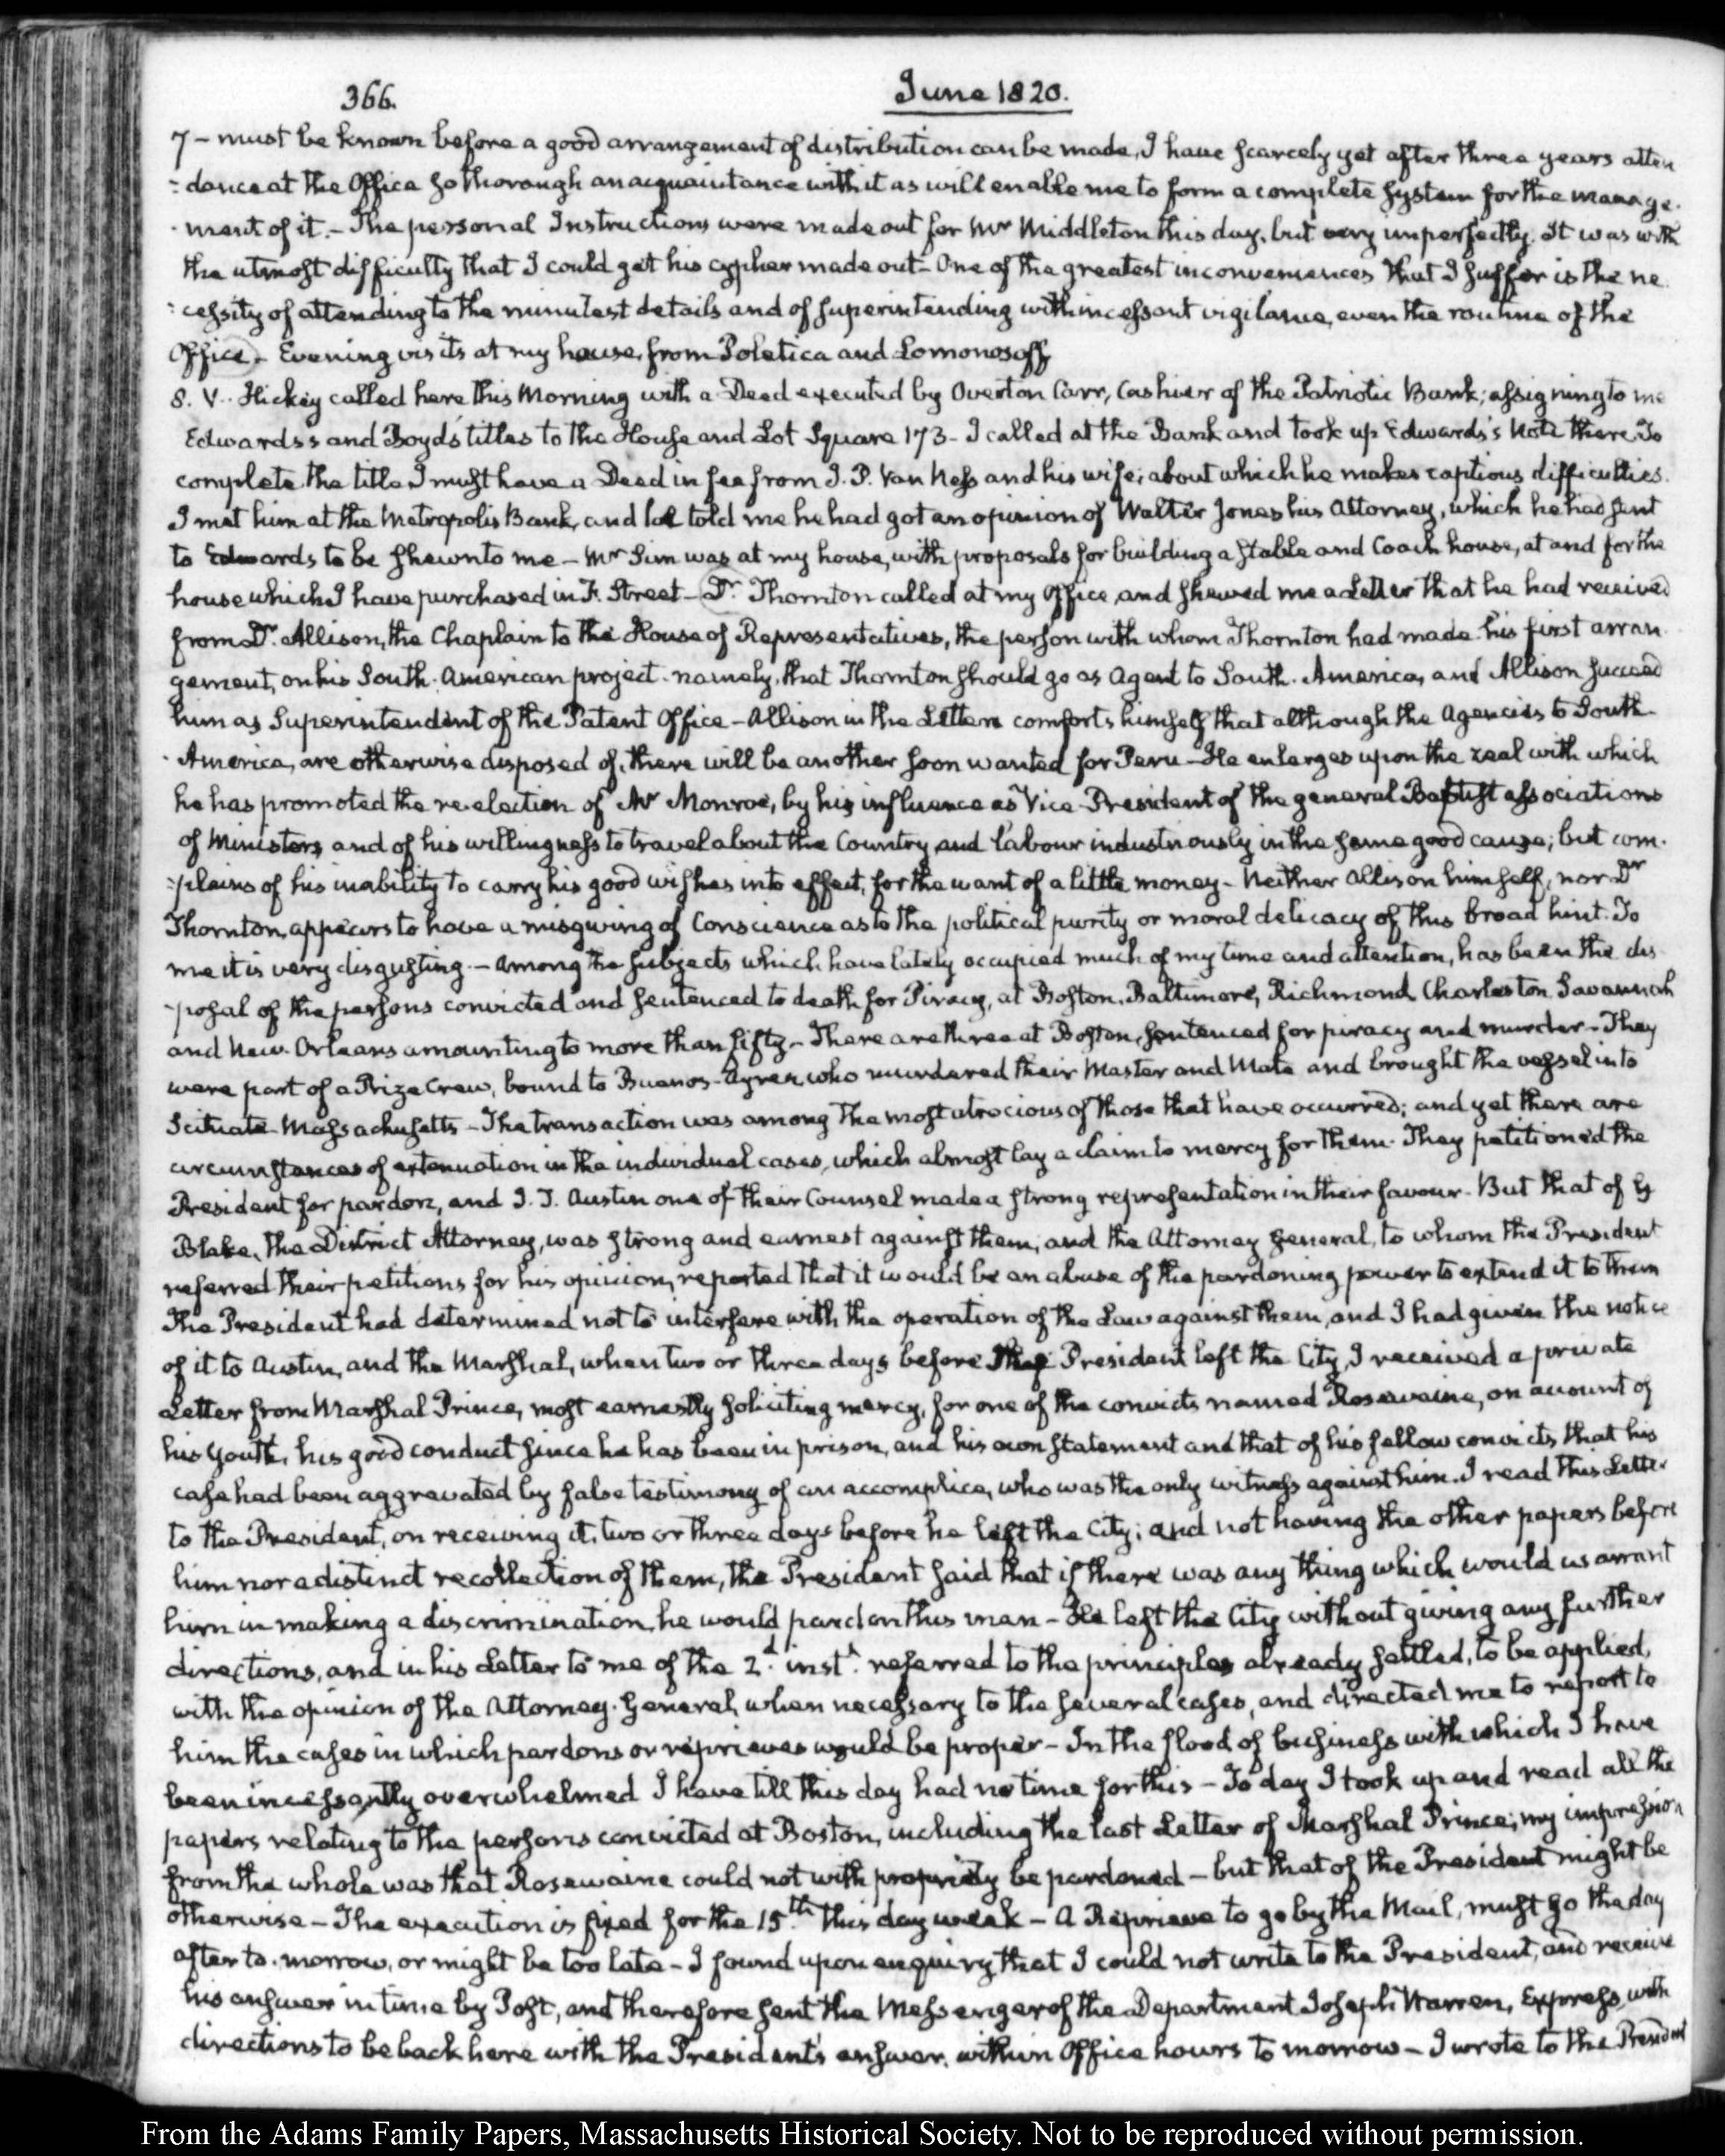 366.
June 1820.
7 – must be known before a good arrangement of distribution can be made, I have scarcely yet after three years atten
:dance at the Office so thorough an acquaintance with it as will enable me to form a complete system for the manage-
-ment of it. – The personal Instructions were made out for Mr Middleton this day, but very imperfectly. It was with
the utmost difficulty that I could get his cypher made out – One of the greatest inconveniences that I suffer is the ne
:cessity of attending to the minutest details and of superintending with incessant vigilance, even the routine of the
Office. – Evening visits at my house, from Poletica and Lomonosoff
8. V. Hickey called here this Morning with a Deed executed by Overton Carr, Cashier of the Patriotic Bank; assigning to me
Edwards's and Boyd's titles to the House and Lot Square 173 – I called at the Bank and took up Edwards's Note there. To
complete the title I must have a Deed in fee from J. P. Van Ness and his wife; about which he makes captious difficulties.
I met him at the Metropolis Bank, and he told me he had got an opinion of Walter Jones his Attorney, which he had sent
to Edwards to be shewn to me – Mr Sim was at my house, with proposals for building a stable and Coach house, at and for the
house which I have purchased in F. Street – Dr. Thornton called at my Office and shewed me a Letter that he had received
from Dr. Allison, the Chaplain to the House of Representatives, the person with whom Thornton had made his first arran
gement, on his South-American project. namely, that Thornton should go as Agent to South-America, and Allison succeed
him as Superintendent of the Patent Office – Allison in the Letter comforts himself that although the Agencies to South-
-America, are otherwise disposed of, there will be another soon wanted for Peru – He enlarges upon the zeal with which
he has promoted the re-election of Mr Monroe, by his influence as Vice-President of the general Baptist associations
of Ministers and of his willingness to travel about the Country and labour industriously in the same good cause; but com-
:plains of his inability to carry his good wishes into effect, for the want of a little money – Neither Allison himself, nor Dr
Thornton, appears to have a misgiving of Conscience as to the political purity or moral delicacy of this broad hint. To
me it is very disgusting. – Among the subjects which have lately occupied much of my time and attention, has been the dis
-posal of the persons convicted and sentenced to death for Piracy, at Boston, Baltimore, Richmond, Charleston Savannah
and New-Orleans amounting to more than fifty – There are three at Boston, sentenced for piracy and murder – They
were part of a Prize Crew, bound to Buenos-Ayres, who murdered their Master and Mate and brought the vessel into
Scituate Massachusetts – The transaction was among the most atrocious of those that have occurred; and yet there are
circumstances of extenuation in the individual cases, which almost lay a claim to mercy for them. They petitioned the
President for pardon, and J. T. Austin one of their Counsel made a strong representation in their favour. But that of G
Blake, the District Attorney, was strong and earnest against them; and the Attorney General, to whom the President
referred their petitions for his opinion, reported that it would be an abuse of the pardoning power to extend it to them
The President had determined not to interfere with the operation of the Law against them, and I had given the notice
of it to Austin, and the Marshal, when two or three days before the President left the City, I received a private
Letter from Marshal Prince, most earnestly soliciting mercy, for one of the convicts named Rosewaine, on account of
his youth, his good conduct since he has been in prison, and his own statement and that of his fellow convicts that his
case had been aggravated by false testimony of an accomplice, who was the only witness against him. I read this Letter
to the President, on receiving it, two or three days before he left the City; and not having the other papers before
him nor a distinct recollection of them, the President said that if there was any thing which would warrant
him in making a discrimination, he would pardon this man – He left the City without giving any further
directions, and in his Letter to me of the 2d. inst. referred to the principles already settled, to be applied,
with the opinion of the Attorney-General, when necessary to the several cases, and directed me to report to
him the cases in which pardons or reprieves would be proper – In the flood of business with which I have
been incessantly overwhelmed I have till this day had no time for this – To day I took up and read all the
papers relating to the persons convicted at Boston, including the last Letter of Marshal Prince; my impression
from the whole was that Rosewaine could not with propriety be pardoned – but that of the President might be
otherwise – The execution is fixed for the 15th. this day week – A Reprieve to go by the Mail, must go the day
after to-morrow, or might be too late – I found upon enquiry that I could not write to the President, and receive
his answer in time by Post, and therefore sent the Messenger of the Department Joseph Warren, Express, with
directions to be back here with the President's answer, within Office hours to morrow – I wrote to the President
From the Adams Family Papers, Massachusetts Historical Society. Not to be reproduced without permission.